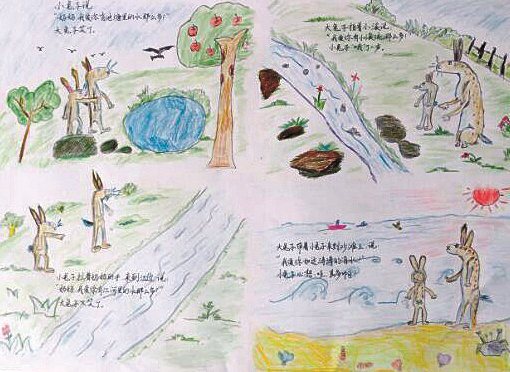 小兔子说:
"妈妈,我爱你有池塘里的水那么多!"
大兔子笑了。
大兔子指着小溪说:
"我爱你有小溪流那么多!"
小兔子"哦"了一声。
小兔子拉着妈妈的手来到江边,说:
"妈妈,我爱你有江河里的水那么多!"
大兔子又笑了。
大兔子带着小兔子来到沙滩上,说:
"我爱你如这涛涛的海水
小兔子心想:哇,真多呀!